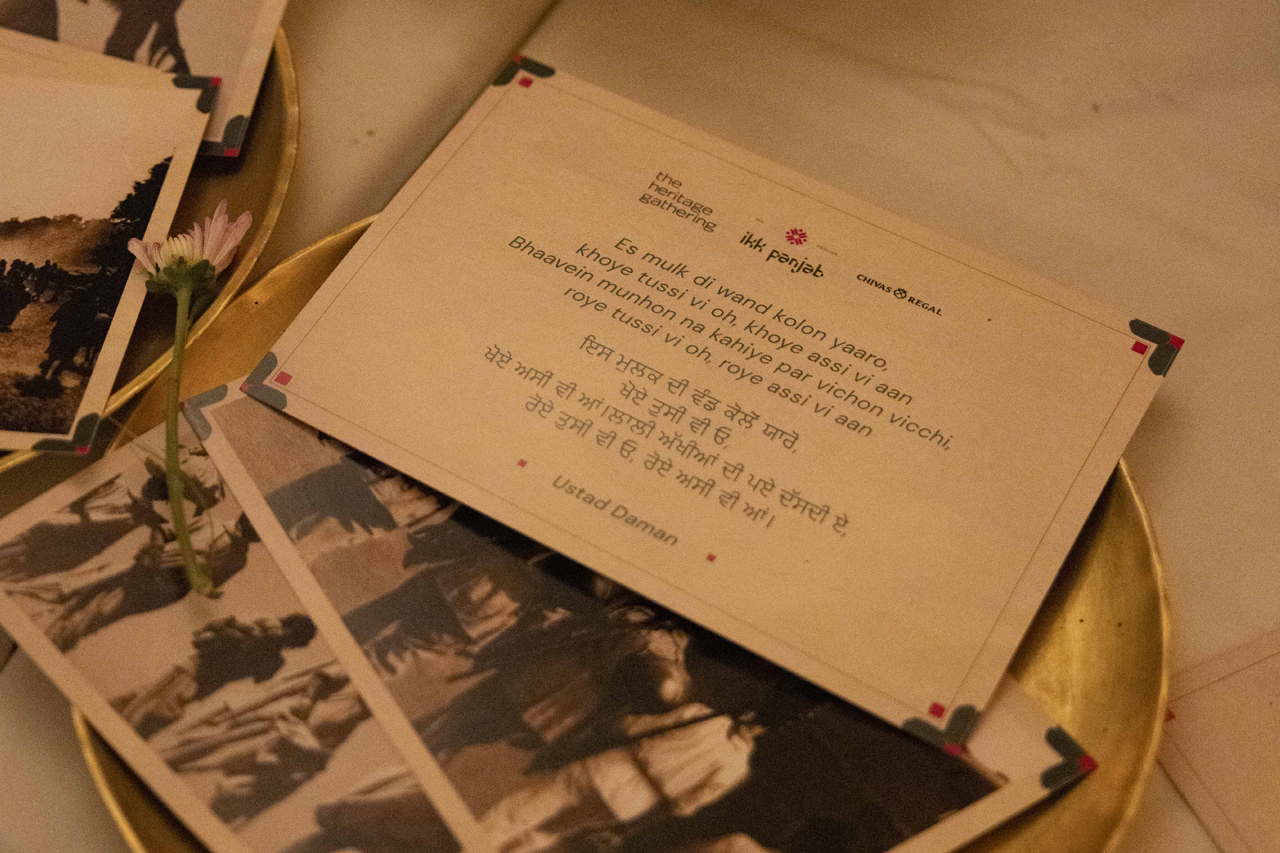 the
heritage
gathering
ikk panjab
CHIVAS REGAL
Es mulk di wand kolon yaaro,
khoye tussi vi oh, khoye assi vi aan
Bhaavein munhon na kahiye par vichon vicchi,
roye tussi vi oh, roye assi vi aan
ਇਸ ਮੁਲਕ ਦੀ ਵੰਡ ਕੋਲੋਂ ਯਾਰੋ,
ਖੋਏ ਤੁਸੀ ਵੀ ਓ,
ਖੋਏ ਅਸੀ ਵੀ ਆਂ।ਲਾਲੀ ਅੱਖੀਆਂ ਦੀ ਪਏ ਦੱਸਦੀ ਏ,
ਰੋਏ ਤੁਸੀ ਵੀ ਓ, ਰੋਏ ਅਸੀ ਵੀ ਆਂ।
Ustad Daman